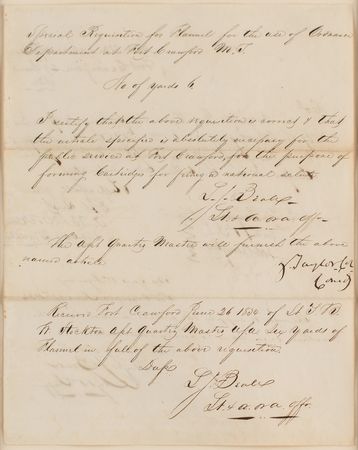 Special Requisition for Flannel for the use of Ordnance
Department at Fort Crawford M.T.
No of yards 6
I certify that the above requisition is correct & that
the whole specified is absolutely necessary for the
public service at Fort Crawford, for the purpose of
forming Cartridges for firing a national salute
Lt & a. ord. offr.
The Ast Quarter Master will furnish the above
named article
Taylor Col
Comdg
Received Fort Crawford June 26 1834 of Lt
Stockton Ast Quarter Master Six Yards of
Flannel in full of the above requisition
Lt & a. ord. offr.